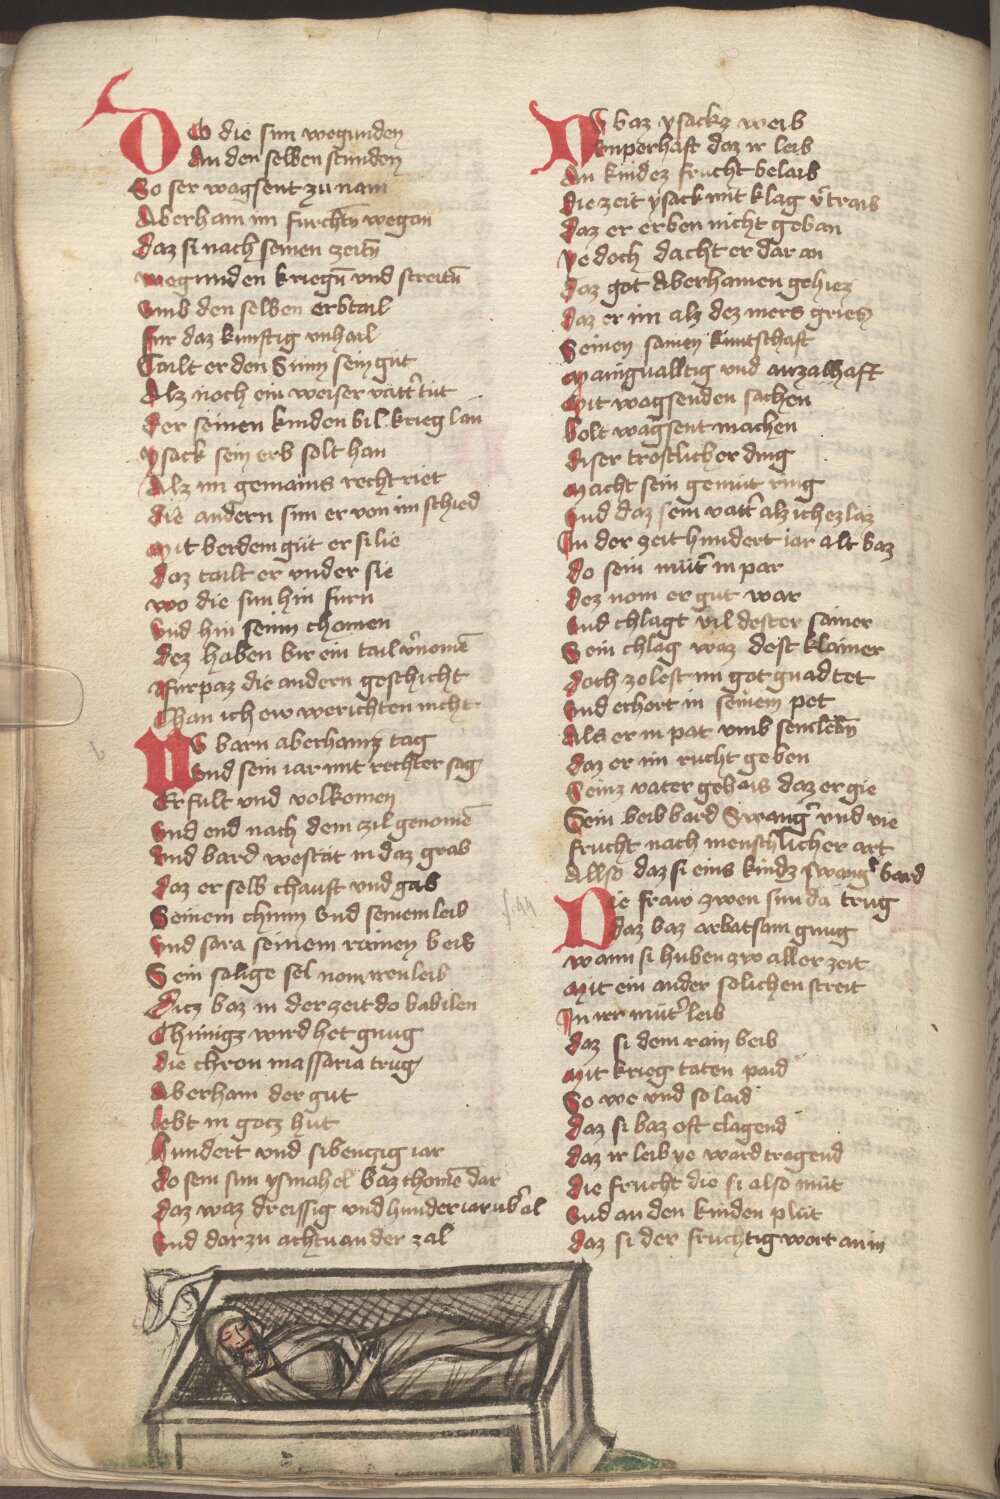 Do die sun wegunden
An den selben stunden
So ser wagsent zu nam
Aberham im furchtn̄ wegan
Daz si nach seinen zeitn̄
wegunden kriegn̄ vnd streitn̄
vmb den selben erbtail
fur daz kunftig vnhail
Tailt er den Sunn sein gut
Alz noch ein weiser vatt̓ tut
Der seinen kinden bil krieg lan
ysack sein erb solt han
Alz im gemains recht riet
die andern sun er von im schied
Mit berdem gut er si lie
Daz tailt er vnder sie
wo die sun hin furn
Vnd hin seinn chomen
Dez haben bir ein tail v̓nomē
Afurpaz die andern geschicht
Chan ich ew werichten nicht
NV barn aberhamz tag
Vnd sein iar mit rechter sag
Erfult vnd volkomen
Vnd end nach dem zil genomē
Vnd bard westat in daz grab
Daz er selb chauft vnd gab
Seinem chunn Vnd seinem leib
Vnd sara seinem rainen beib
Sein salige sel nom iren leib
Dicz baz in der zeit do babilen
Chunigz wird het gnug
Die chron massaria trug
Aberham der gut
lebt in gocz hut
Hundert vnd sibenczig iar
Do sein sun ysmahel baz chomē dar
Daz waz dreissig vnd hunder iar ub̓al
Vnd darzu achtu an der zal
DO baz ysackz weib
Vnperhaft daz ir leib
An kindez frucht belaib
Die zeit ysack mit klag v̓traib
Daz er erben nicht geban
yedoch dacht er dar an
Daz got Aberhamen gehiez
Daz er im alz dez mers griez
Seinen samen kuntschaft
Mainguualltig vnd anzalhaft
Mit wagsenden sachen
bolt wagsent machen
Diser trostlicher ding
Macht sein gemut ring
Vnd daz sein vatt̓ alz ich ez laz
In der zeit hundert iar alt baz
Do sein mut̓ in par
Dez nom er gut war
Vnd chlagt vil dester sainer
Sein chlag waz dest klainer
Doch zolest im got gnad tet
Vnd erhort in seinem pet
Als er in pat vmb sein lebn̄
Daz er im frucht geben
Seinz vater gehais daz ergie
Sein beib bard Swang̓ vnd vie
frucht nach menschlicher art
Allso daz si eins kindz swang̓ bard
Die fraw zwen sun da trug
Daz baz arbatsam gnug
wann si huben zw aller zeit
Mit ein ander solichen streit
In irr mut̓ leib
Daz si dem rain beib
Mit krieg taten paid
So we vnd so laid
Daz si baz oft clagend
Daz ir leib ye ward tragend
Die frucht die si also mut
Vnd an den kinden plut
Daz si der fruchtig wort an in